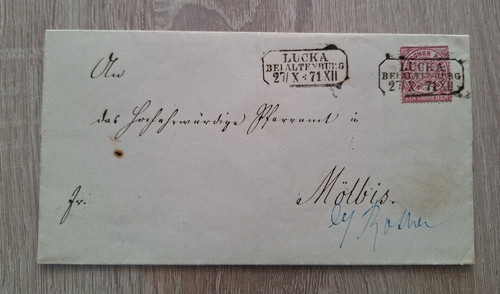 LUCKA
BEI ALTENBURG
27/ X * 71 XII
LUCKA
BEI ALTENBURG
27/ X * 71 XII
An
das Hochehrwürdige Pfarramt in
Fr.
Mölbis.